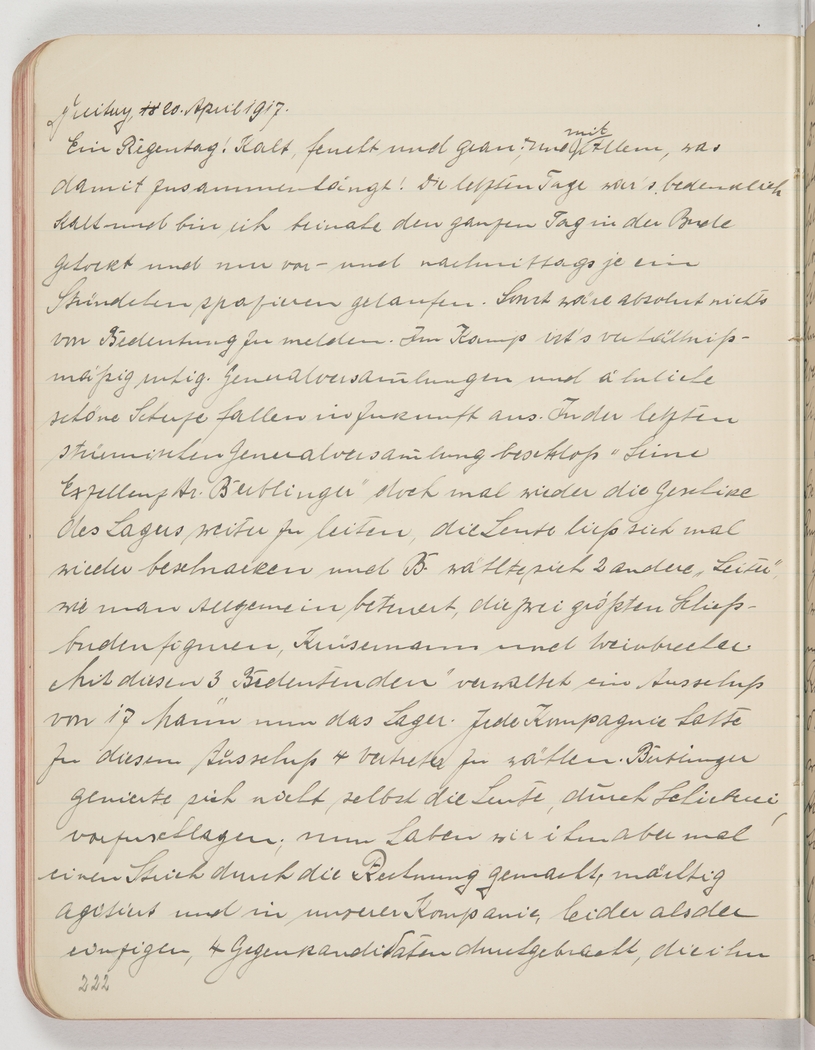 Freitag, 20. April 1917.
Ein Regentag! Kalt, feucht und grau; und mit Allem, was
damit zusammenhängt! Die letzten Tage war's bedenklich
kalt und bin ich beinahe den ganzen Tag in der Bude
gehockt und nur vor- und nachmittags je ein
Stündchen spazieren gelaufen. Sonst wäre absolut nichts
von Bedeutung zu melden. Im Kamp ist's verhältniß-
mäßig ruhig. Generalversam̄lungen und ähnliche
schöne Scherze fallen in Zukunft aus. In der letzten
stürmischen Generalversam̄lung beschloß "Seine
Exzellenz Hr. Bieblinger" doch mal wieder die Geschike
des Lagers weiter zu leiten, die Leute ließ sich mal
wieder beschnacken und B. wählte sich 2 andere "Leiter",
wie man Allgemein beteuert, die zwei größten Schieß-
budenfiguren, Krüsemann und Weinbrecher.
Mit diesen 3 Bedeutenden" verwaltet ein Ausschuß
von 17 Mann nun das Lager. Jede Kompagnie hatte
zu diesem Ausschuß 4 Vertreter zu wählen. Bieblinger
genierte sich nicht, selbst die Leute, durch Schieberei,
vorzuschlagen; nun haben wir ihm aber mal
einen Strich durch die Rechnung gemacht, mächtig
agitirt und in unserer Kompanie, leider als der
einzigen, 4 Gegenkandidaten durchgebracht, die ihm
222